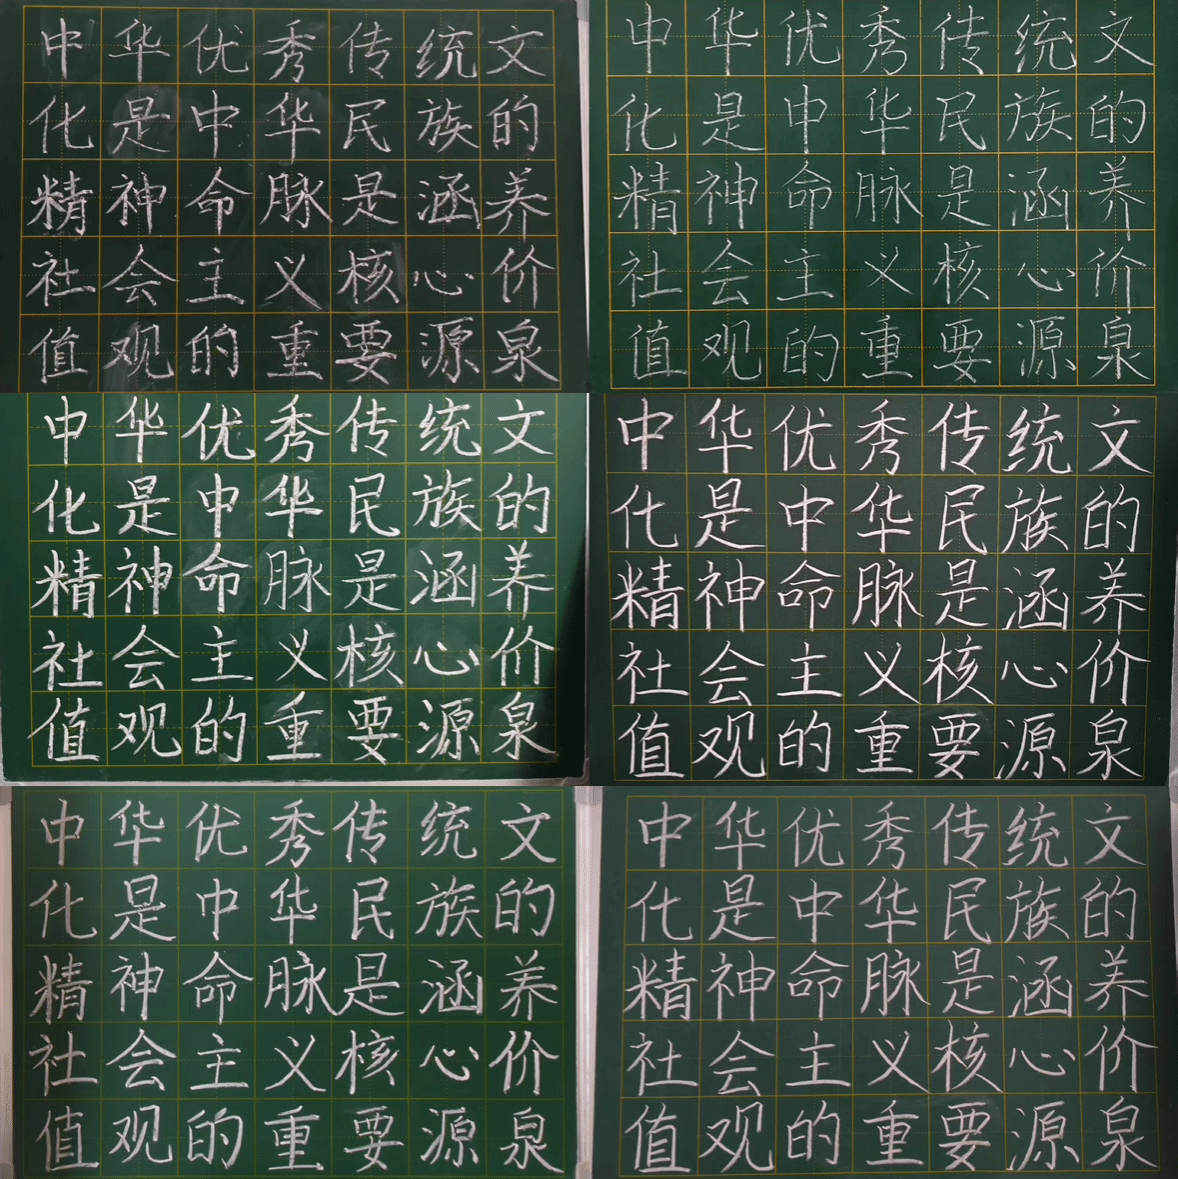 中华优秀传统文
化是中华民族的
精神命脉是涵养
社会主义核心价
值观的重要源泉
中华优秀传统文
化是中华民族的
精神命脉是涵养
社会主义核心价
值观的重要源泉
中华优秀传统文
化是中华民族的
精神命脉是涵养
社会主义核心价
值观的重要源泉
中华优秀传统文
化是中华民族的
精神命脉是涵养
社会主义核心价
值观的重要源泉
中华优秀传统文
化是中华民族的
精神命脉是涵养
社会主义核心价
值观的重要源泉
中华优秀传统文
化是中华民族的
精神命脉是涵养
社会主义核心价
值观的重要源泉